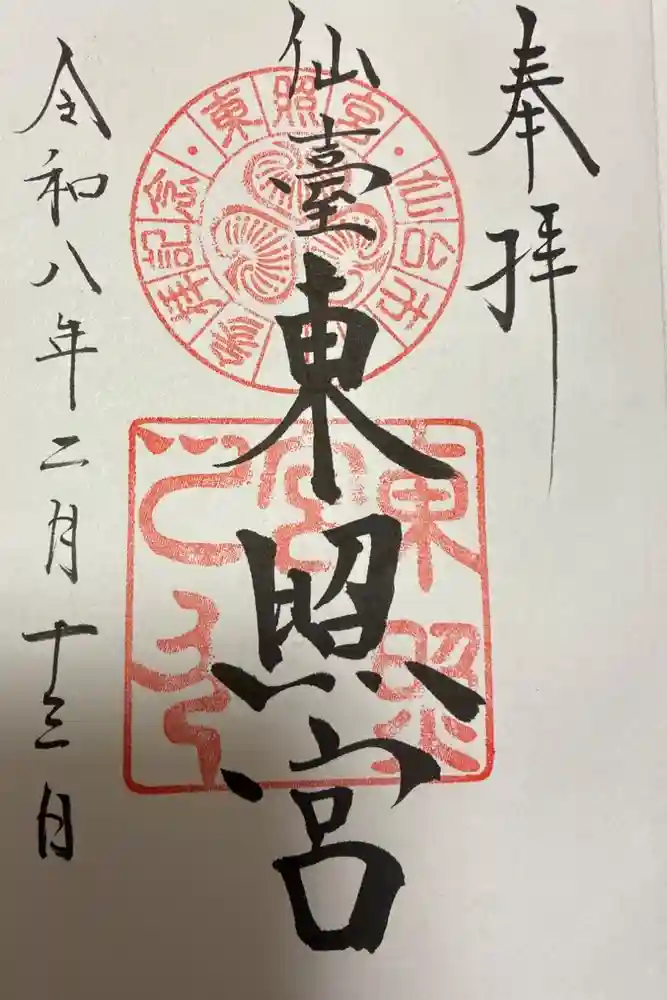 奉拝
仙臺東照宮
令和八年二月十三日
東照宮・仙台市・
参拝記念
東照宮